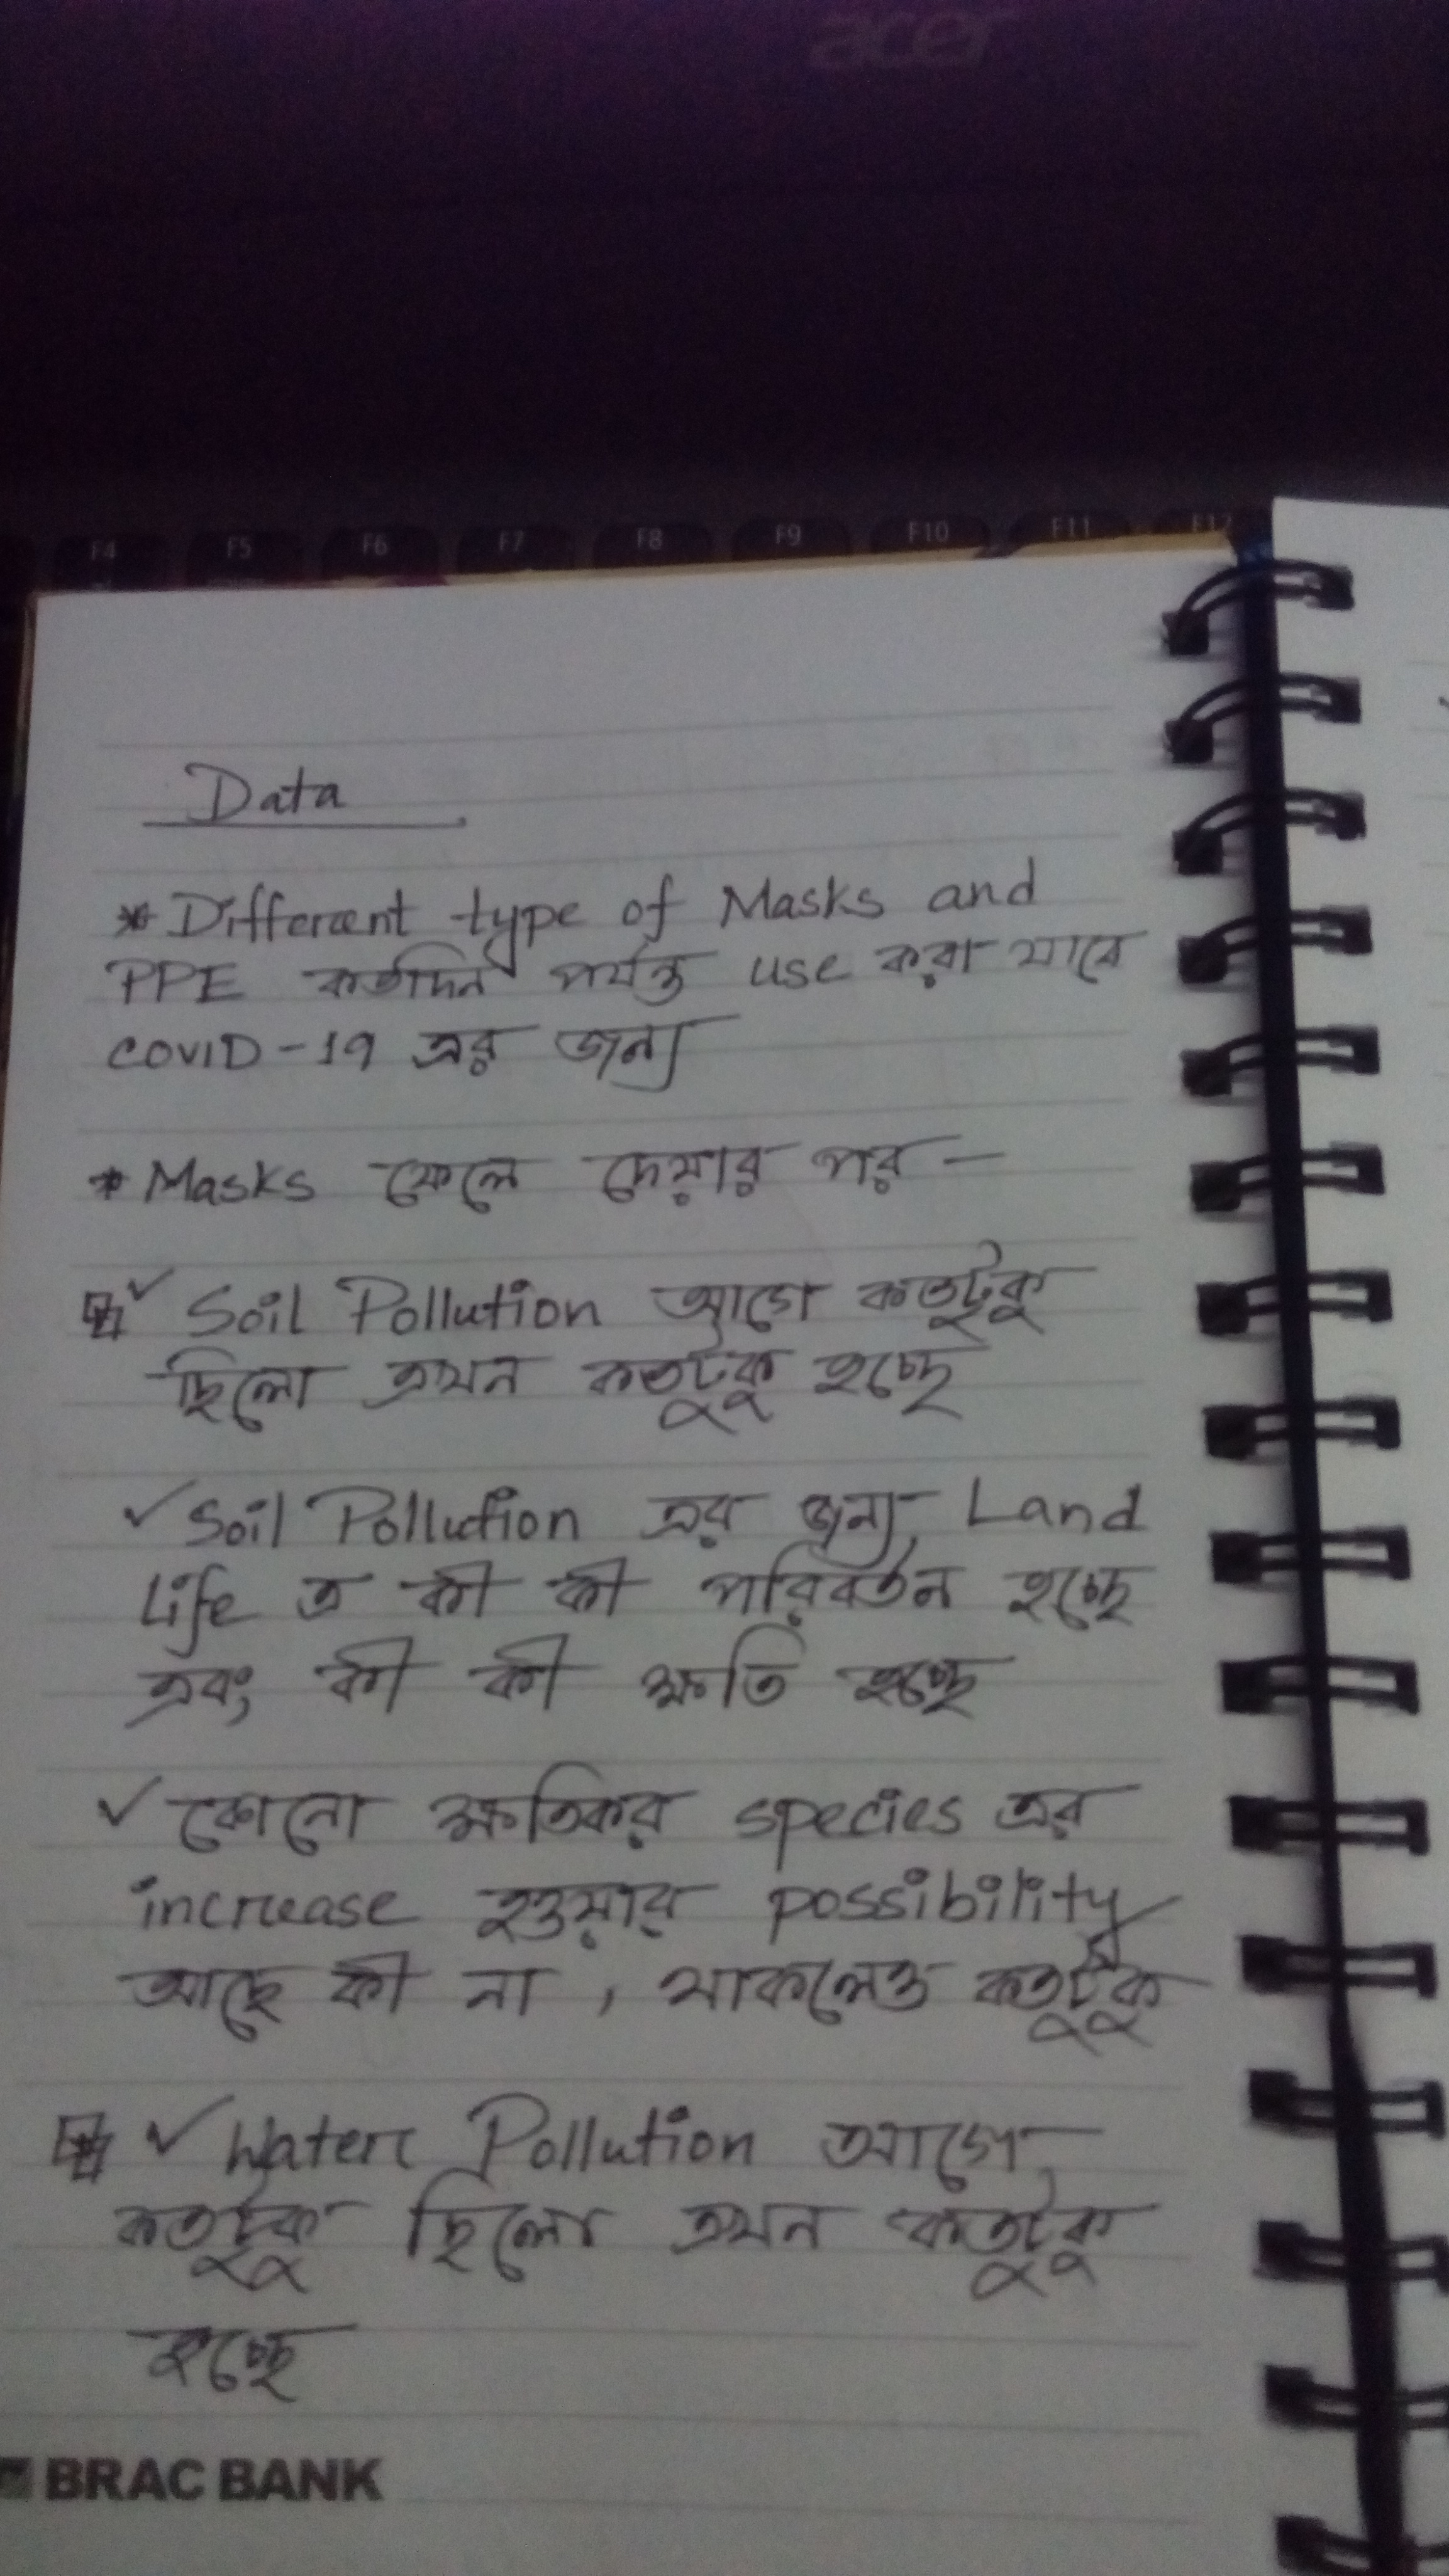 acer
F4 F5 F6 F7 F8 F9 F10 F11 F12
Data
* Different type of Masks and
PPE কতদিন পর্যন্ত use করা যাবে
COVID-19 এর জন্য
* Masks ফেলে দেয়ার পর —
✓ Soil Pollution আগে কতটুকু
ছিলো এখন কতটুকু হচ্ছে
✓ Soil Pollution এর জন্য Land
Life এ কী কী পরিবর্তন হচ্ছে
এবং কী কী ক্ষতি হচ্ছে
✓ কোনো ক্ষতিকর species এর
increase হওয়ার possibility
আছে কী না, থাকলেও কতটুকু
✓ Water Pollution আগে
কতটুকু ছিলো এখন কতটুকু
হচ্ছে
BRAC BANK